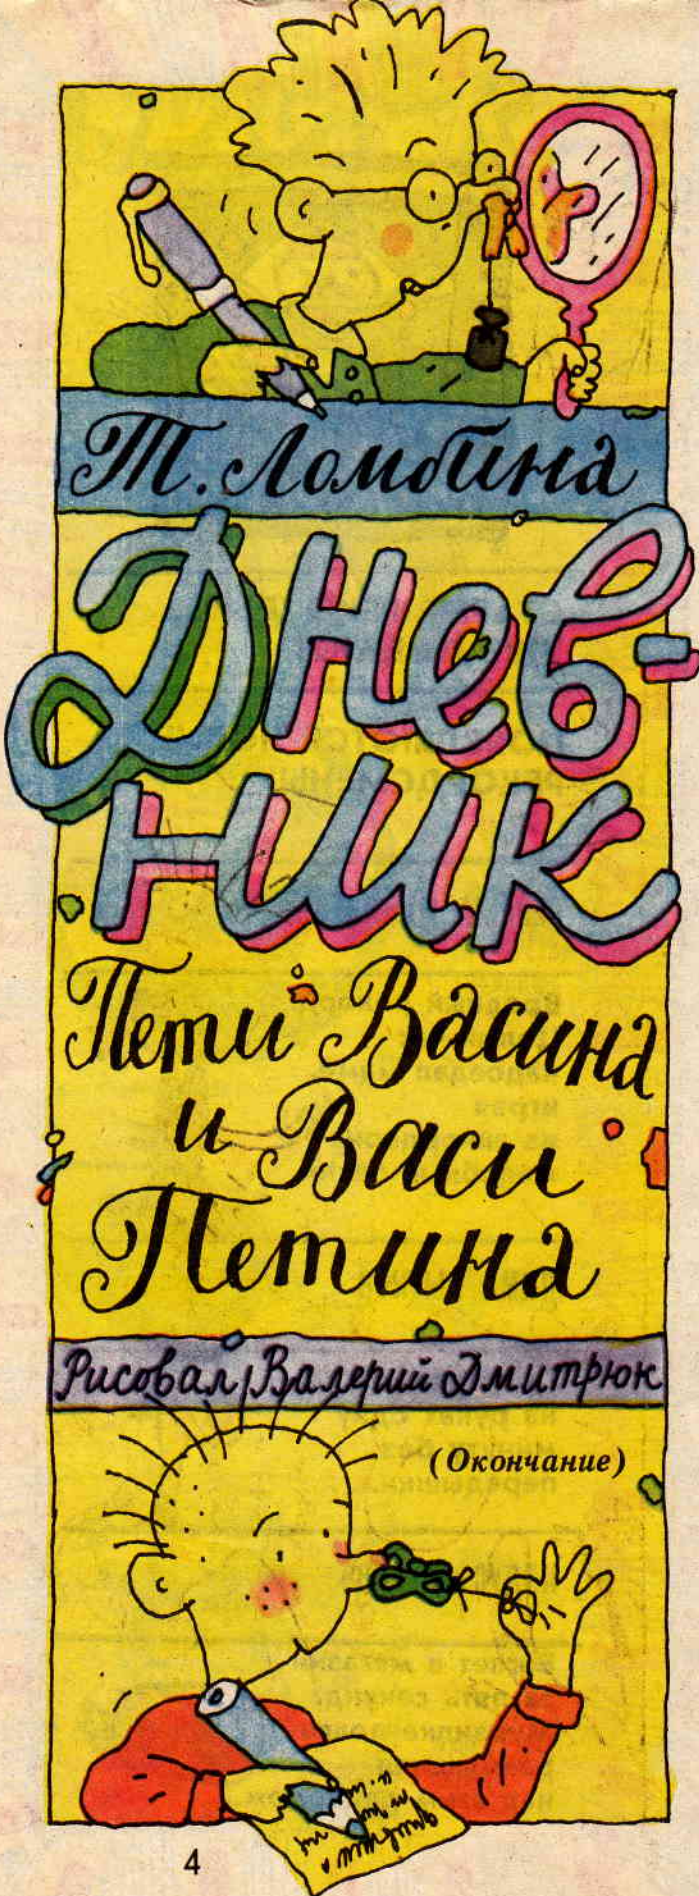 Т. Ломбина
Днев-
ник
Пети Васина
и Васи
Петина
Рисовал Валерий Дмитрюк
(Окончание)
4